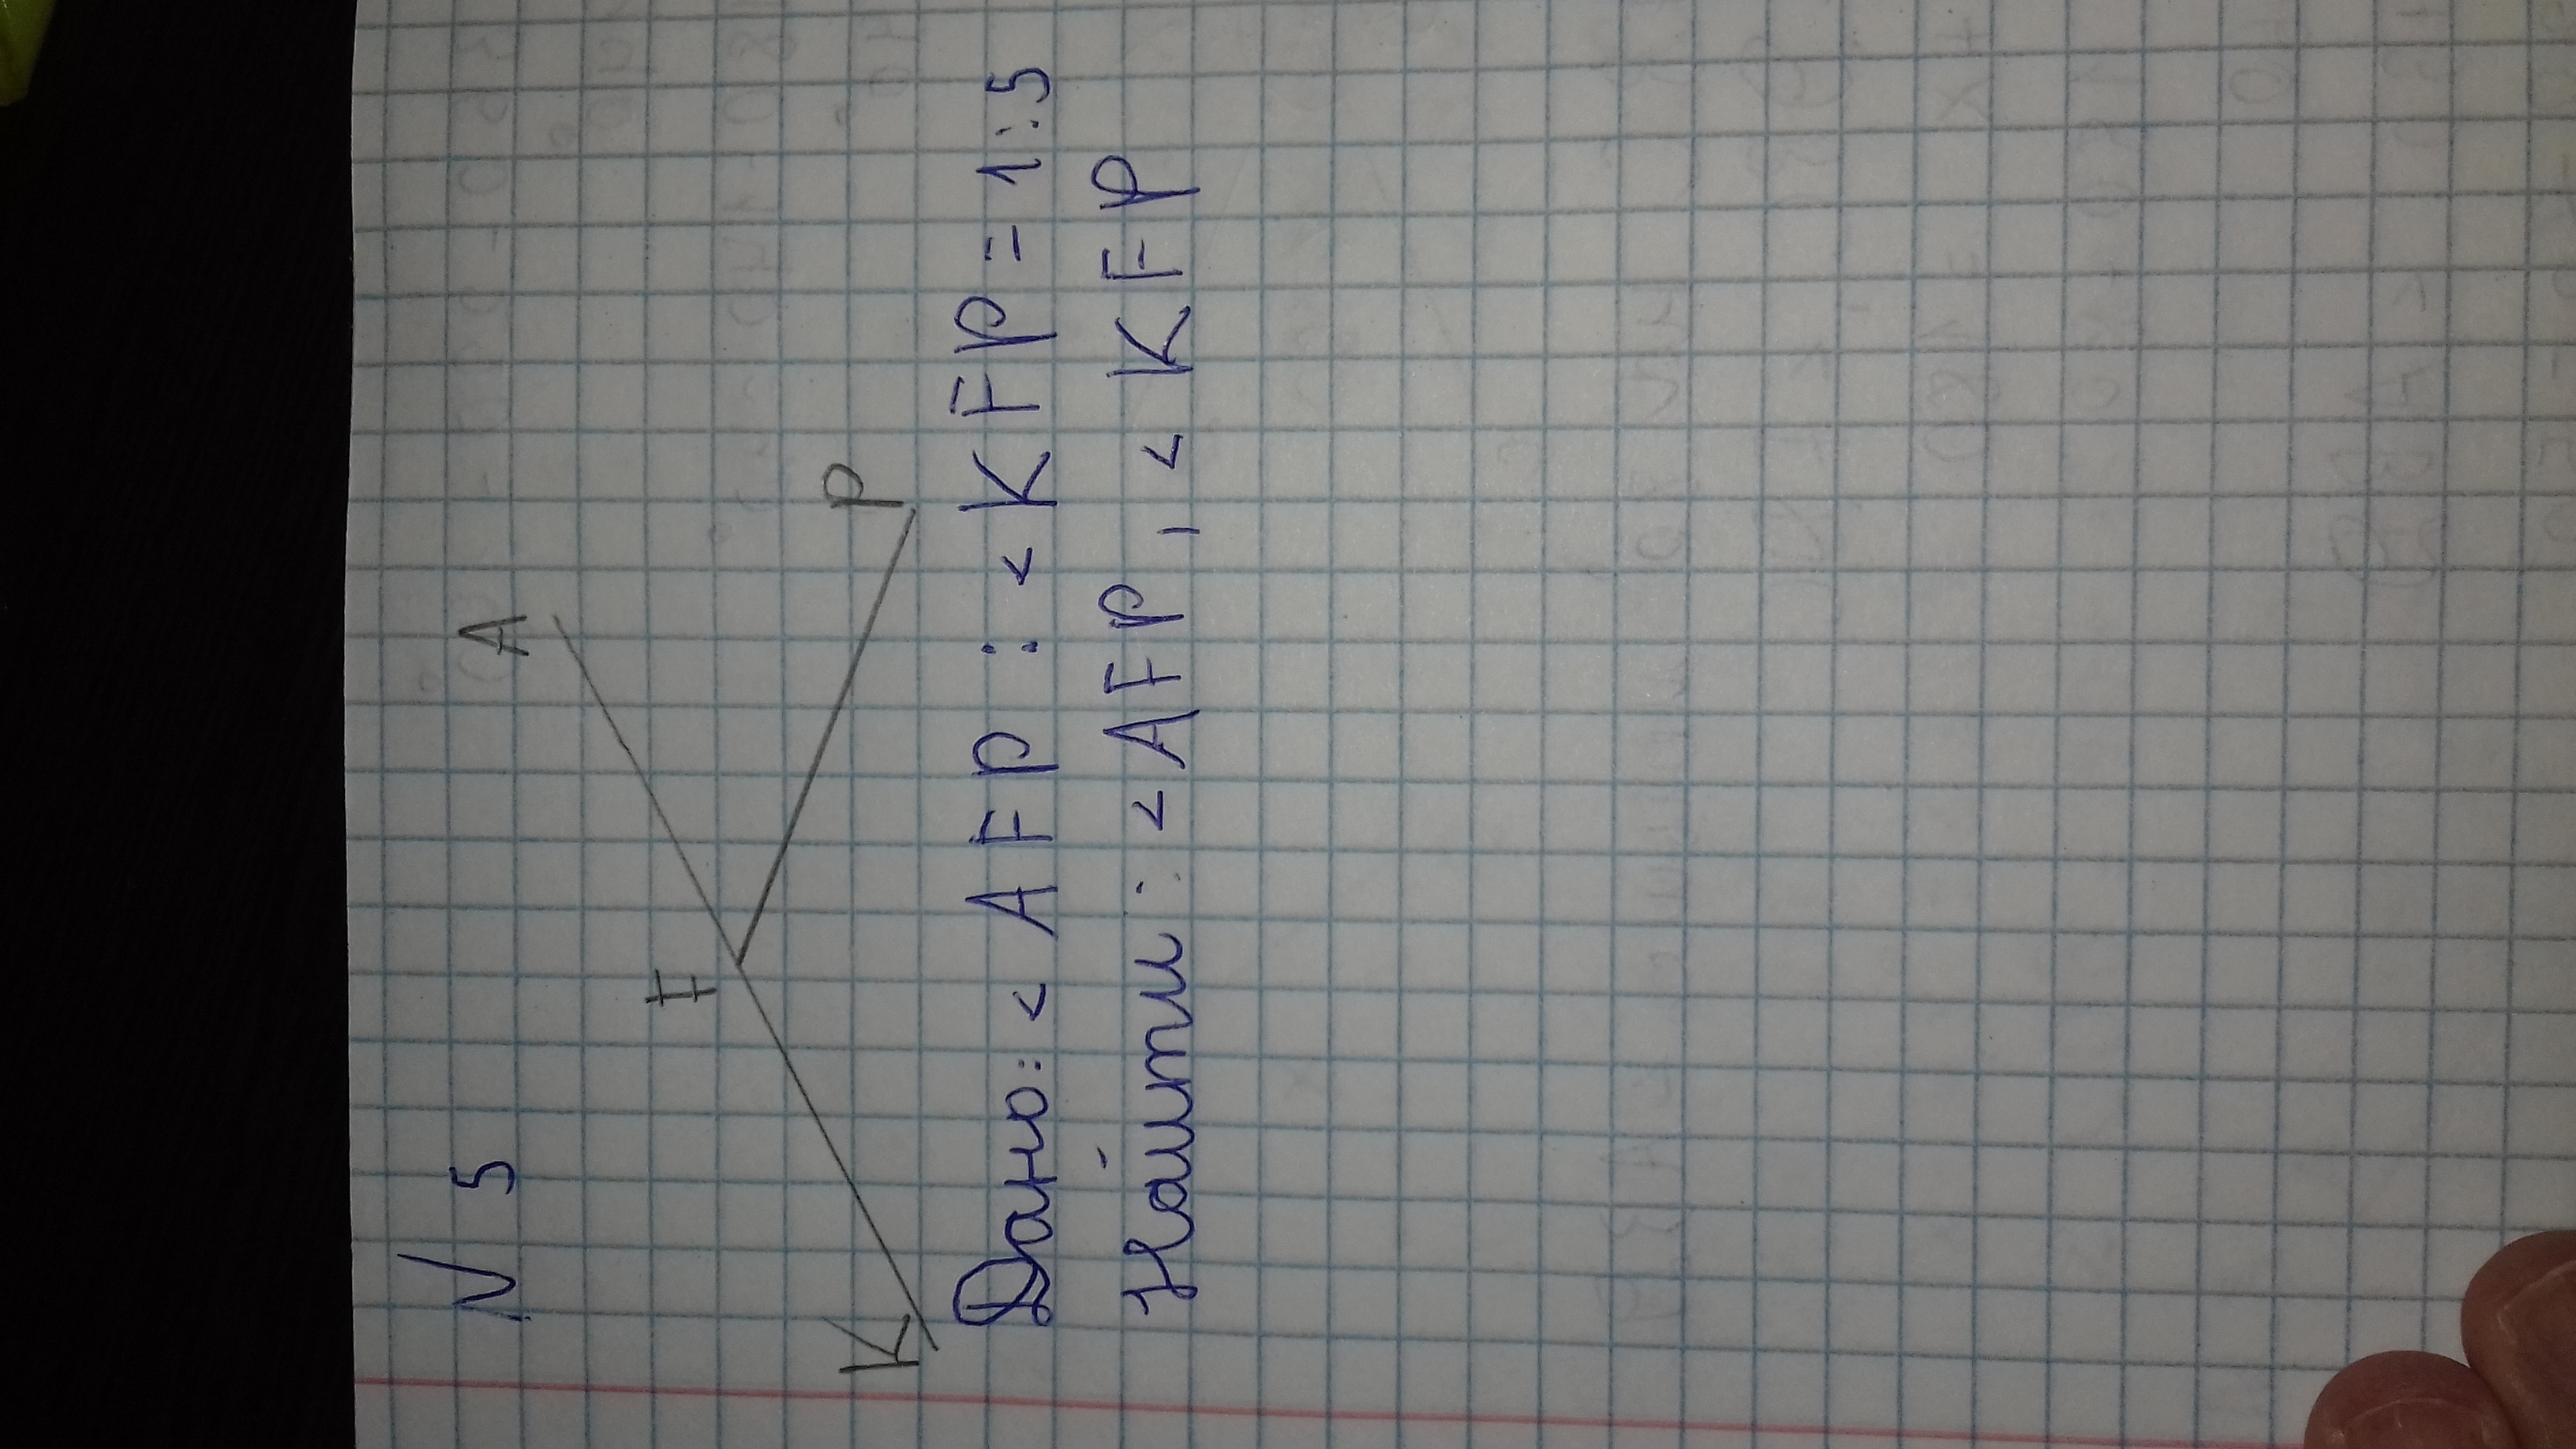 N 5
A
F
P
K
Дано: < AFP : < KFP = 1:5
Найти: < AFP, < KFP